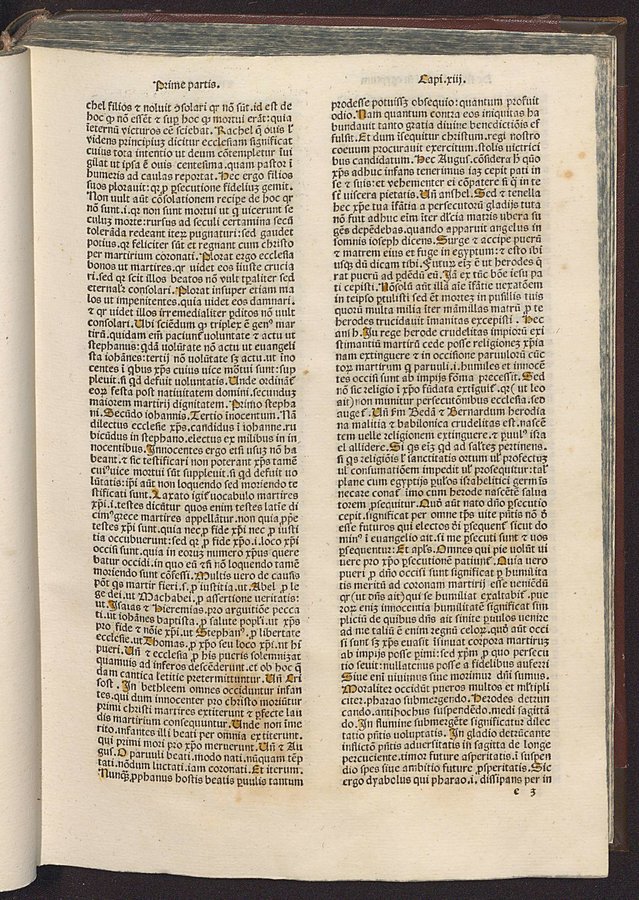 Prime partis.
Capi. xiij.
chel filios & noluit ɔsolari qr nõ sũt.id est de
hoc ꝙ nõ essẽt & sup hoc ꝙ mortui erãt:quia
ieternũ victuros eẽ sciebat. Rachel q̃ ouis ĩ
videns principiuʒ dicitur ecclesiam significat
cuius tota intentio ut deum cõtempletur ĩui
gilat ut ipsa ẽ ouis centesima.quam pastor ĩ
humeris ad caulas reportat. Hec ergo filios
suos plorauit: qr ꝓ psecutione fidelium gemit.
Non uult aũt cõsolationem recipe de hoc qr
nõ sunt.i.qr non sunt mortui ut q̃ uicerunt se
culuʒ morte:rursus ad seculi certamina secũ
tolerãda redeant iteꝝ pugnaturi:sed gaudet
potius.qr feliciter sũt et regnant cum christo
per martirium coronati. Plorat ergo ecclesia
bonos ut martires.qr uidet eos iiuste crucia
ri.sed qr scit illos beatos nõ vult tꝑaliter sed
eternalr consolari. Plorat insuper etiam ma
los ut impenitentes.quia uidet eos damnari.
& qr uidet illos irremedialiter pditos nõ uult
consolari. Ubi sciẽdum ꝙ triplex ẽ genꝰ mar
tirũ.quidam eni paciunt uoluntate & actu ut
stephanus:qdã uolũtate nõ actu ut euangeli
sta iohãnes:tertij nõ uolũtate sʒ actu.ut ino
centes ĩ qbus xp̃s cuius uice mõtui sunt:sup
pleuit.si qd defuit voluntatis. Unde ordinat̃
eoꝝ festa post natiuitatem domini.secundum
maiorem martirij dignitatem. Primo stepha
ni. Secũdo iohannis. Tertio inocentum. Nã
dilectus ecclesie xp̃s.candidus ĩ iohanne.ru
bicũdus in stephano.electus ex milibus in in
nocentibus. Innocentes ergo etsi usuʒ nõ ha
beant.& sic testificari non poterant xp̃s tamẽ
cuiꝰuice mortui sũt suppleuit.si qd defuit uo
lũtatis:ipi aũt non loquendo sed moriendo te
stificati sunt. Laxato igit uocabulo martires
xp̃i.i.testes dicũtur quos enim testes latie di
cimꝰgrece martires appellãtur.non quia ꝓpe
testes xp̃i sunt.quia nec ꝓ fide xp̃i nec ꝓ iusti
tia occubuerunt:sed qr ꝓ fide xp̃o.i.loco xp̃i
occisi sunt.quia in eoꝝ numero xp̃us quere
batur occidi.in quo eũ tñ nõ loquendo tamẽ
moriendo sunt cõfessi. Multis uero de causis
põt qs martir fieri.s.ꝓ iustitia.ut Abel ꝓ le
ge dei.ut Machabei.ꝓ assertione veritatis:
ut Isaias & Hieremias.pro argutiõe pecca
ti.ut iohãnes baptista.ꝓ salute ppli.ut xp̃s
pro fide & nõie xp̃i.ut Stephanꝰ.ꝓ libertate
ecclesie.ut Thomas.ꝓ xp̃o seu loco xp̃i.ut hi
pueri. Uñ & ecclesia ꝓ his pueris solemnizat
quamuis ad inferos descẽderunt.et ob hoc q̃
dam cantica letitie pretermittuntur. Uñ Cri
sost. In bethleem omnes occiduntur infan
tes.qui dum innocenter pro christo moriũtur
primi christi martires extiterunt & pfecte lau
dis martirium consequuntur. Unde non ime
rito.infantes illi beati per omnia extiterunt.
qui primi mori pro xp̃o meruerunt. Uñ & Au
gus. O paruuli beati.modo nati.nũquam tẽp
tati.nõdum luctati.iam coronati. Et iterum.
Nunꝙ ꝓphanus hostis beatis paruulis tantum
prodesse potuissʒ obsequio:quantum profuit
odio. Nam quantum contra eos iniquitas ha
bundauit tanto gratia diuine benedictiõis ef
fulsit. Et dum isequitur christum.regi nostro
coeuum procurauit exercitum.stolis uictrici
bus candidatum. Hec Augus.cõsidera h̃ quõ
xp̃s adhuc infans tenerimus iaʒ cepit pati in
se & suis:et vehementer ei cõpatere si q̃ in te
sẽ uiscera pietatis. Uñ anshel. Sed & tenella
hec xp̃e tua ĩfãtia a persecutorũ gladijs tuta
nõ fuit adhuc eim ĩter dlcia matris ubera su
gẽs depẽdebas.quando apparuit angelus in
somnis ioseph dicens. Surge & accipe pueꝝ
& matrem eius et fuge in egyptum:& esto ibi
usqʒ dũ dicam tibi. Futuꝝ eiʒ ẽ ut herodes q̃
rat pueꝝ ad pdẽdũ eũ. Ia ex tũc bõe iesu pa
ti cepisti. Nõsolũ aũt illã aĩe ifãtie uexatõem
in teipso ꝑtulisti sed et mortez in pusillis tuis
quorũ multa milia ĩter mãmillas matrũ ꝓ te
herodes trucidauit ĩmanitas excepisti. Hec
anh. Iu rege herode crudelitas impioꝝ exi
stimantiũ martirũ cede posse religionez xp̃ia
nam extinguere & in occisione paruuloꝝ cũc
toꝝ martirum q̃ paruuli.i.humiles et innocẽ
tes occisi sunt ab impijs forma precessit. Sed
nõ sic religio ĩ xp̃o fũdata extiguit̃.qr (ut leo
ait)non minuitur persecutõnibus ecclesia.sed
auget̃. Uñ fm Bedã & Bernardum herodia
na malitia & babilonica crudelitas est.nascẽ
tem uelle religionem extinguere.& puulꝰ isra
el allidere. Si qs eiʒ qd ad saltez pertinens.
si qs religiois ĩ sanctitatio oritur ul ꝓfectuʒ
ul cõsumatiõem impedit ul ꝓsequitur:tal̃
plane cum egyptijs puulos israhelitici germĩs
necare conat̃ imo cum herode nascẽtẽ salua
torem ꝓsequitur. Quõ aũt nato dño ꝓsecutio
cepit.significat per omne tꝑs uite pñtis nõ ð
esse futuros qui electos ðĩ ꝑsequent̃ sicut do
minꝰ ĩ euangelio ait.si me psecuti sunt & uos
psequentur: Et apls. Omnes qui pie uolũt ui
uere pro xp̃o ꝓsecutionẽ patiunt̃. Quia uero
pueri ꝓ dño occisi sunt significat ꝓ humilita
tis meritũ ad coronam martirij esse ueniẽdũ
qr (ut dñs ait)qui se humiliat exaltabit̃.pue
roꝝ enĩʒ innocentia humilitatẽ significat sim
plicitũ de quibus dñs ait sinite puulos uenire
ad me taliũ ẽ enim regnũ celoꝝ.quõ aũt occi
si sunt sʒ xp̃s euasit ĩsinuat corpora martiruʒ
ab impijs posse pimi:sed xp̃m ꝓ quo persecu
tio seuit:nullatenus posse a fidelibus auferri
Siue enĩ uiuimus siue morimur dñi sumus.
Moraliter occidũt pueros multos et mĩtipli
citer.pharao submergendo. Herodes detrun
cando.antihochus suspendẽdo.medi sagittã
do. In flumine submergẽte significatur dilec
tatio pñtis uoluptatis. In gladio detrũcante
inflictõ pñtis aduersitatis in sagitta de longe
percuciente.timor future asperitatis.ĩ suspen
dio spes siue ambitio future ꝓsperitatis. Sic
ergo dyabolus qui pharao.i.dissipans per in
e 3